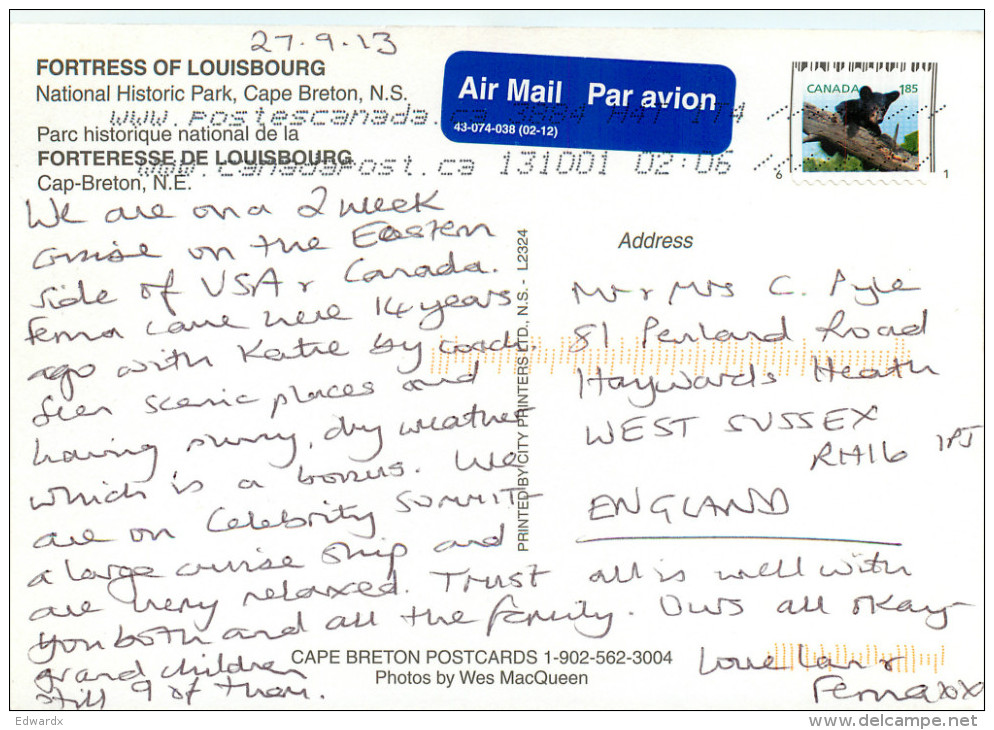 27.9.13
FORTRESS OF LOUISBOURG
National Historic Park, Cape Breton, N.S.
Parc historique national de la
FORTERESSE DE LOUISBOURG
Cap-Breton, N.E.
Air Mail Par avion
43-074-038 (02-12)
www.postescanada.ca 3884
www.canadapost.ca 131001 02:06
CANADA 185
6 1
We are on a 2 week
cruise on the Eastern
side of USA & Canada.
Fema came here 14 years
ago with Katie by coach.
Seen scenic places and
having sunny, dry weather
which is a bonus. We
are on Celebrity SUMMIT
a large cruise ship and
are very relaxed. Trust all is well with
you both and all the family. Ours all okay
grand children
still 9 of them.
Love Ian &
Fema xx
PRINTED BY CITY PRINTERS LTD., N.S. - L2324
Address
Mr & Mrs C. Pyle
81 Penland Road
Haywards Heath
WEST SUSSEX
RH16 1PJ
ENGLAND
CAPE BRETON POSTCARDS 1-902-562-3004
Photos by Wes MacQueen
Edwardx
delcampe.net